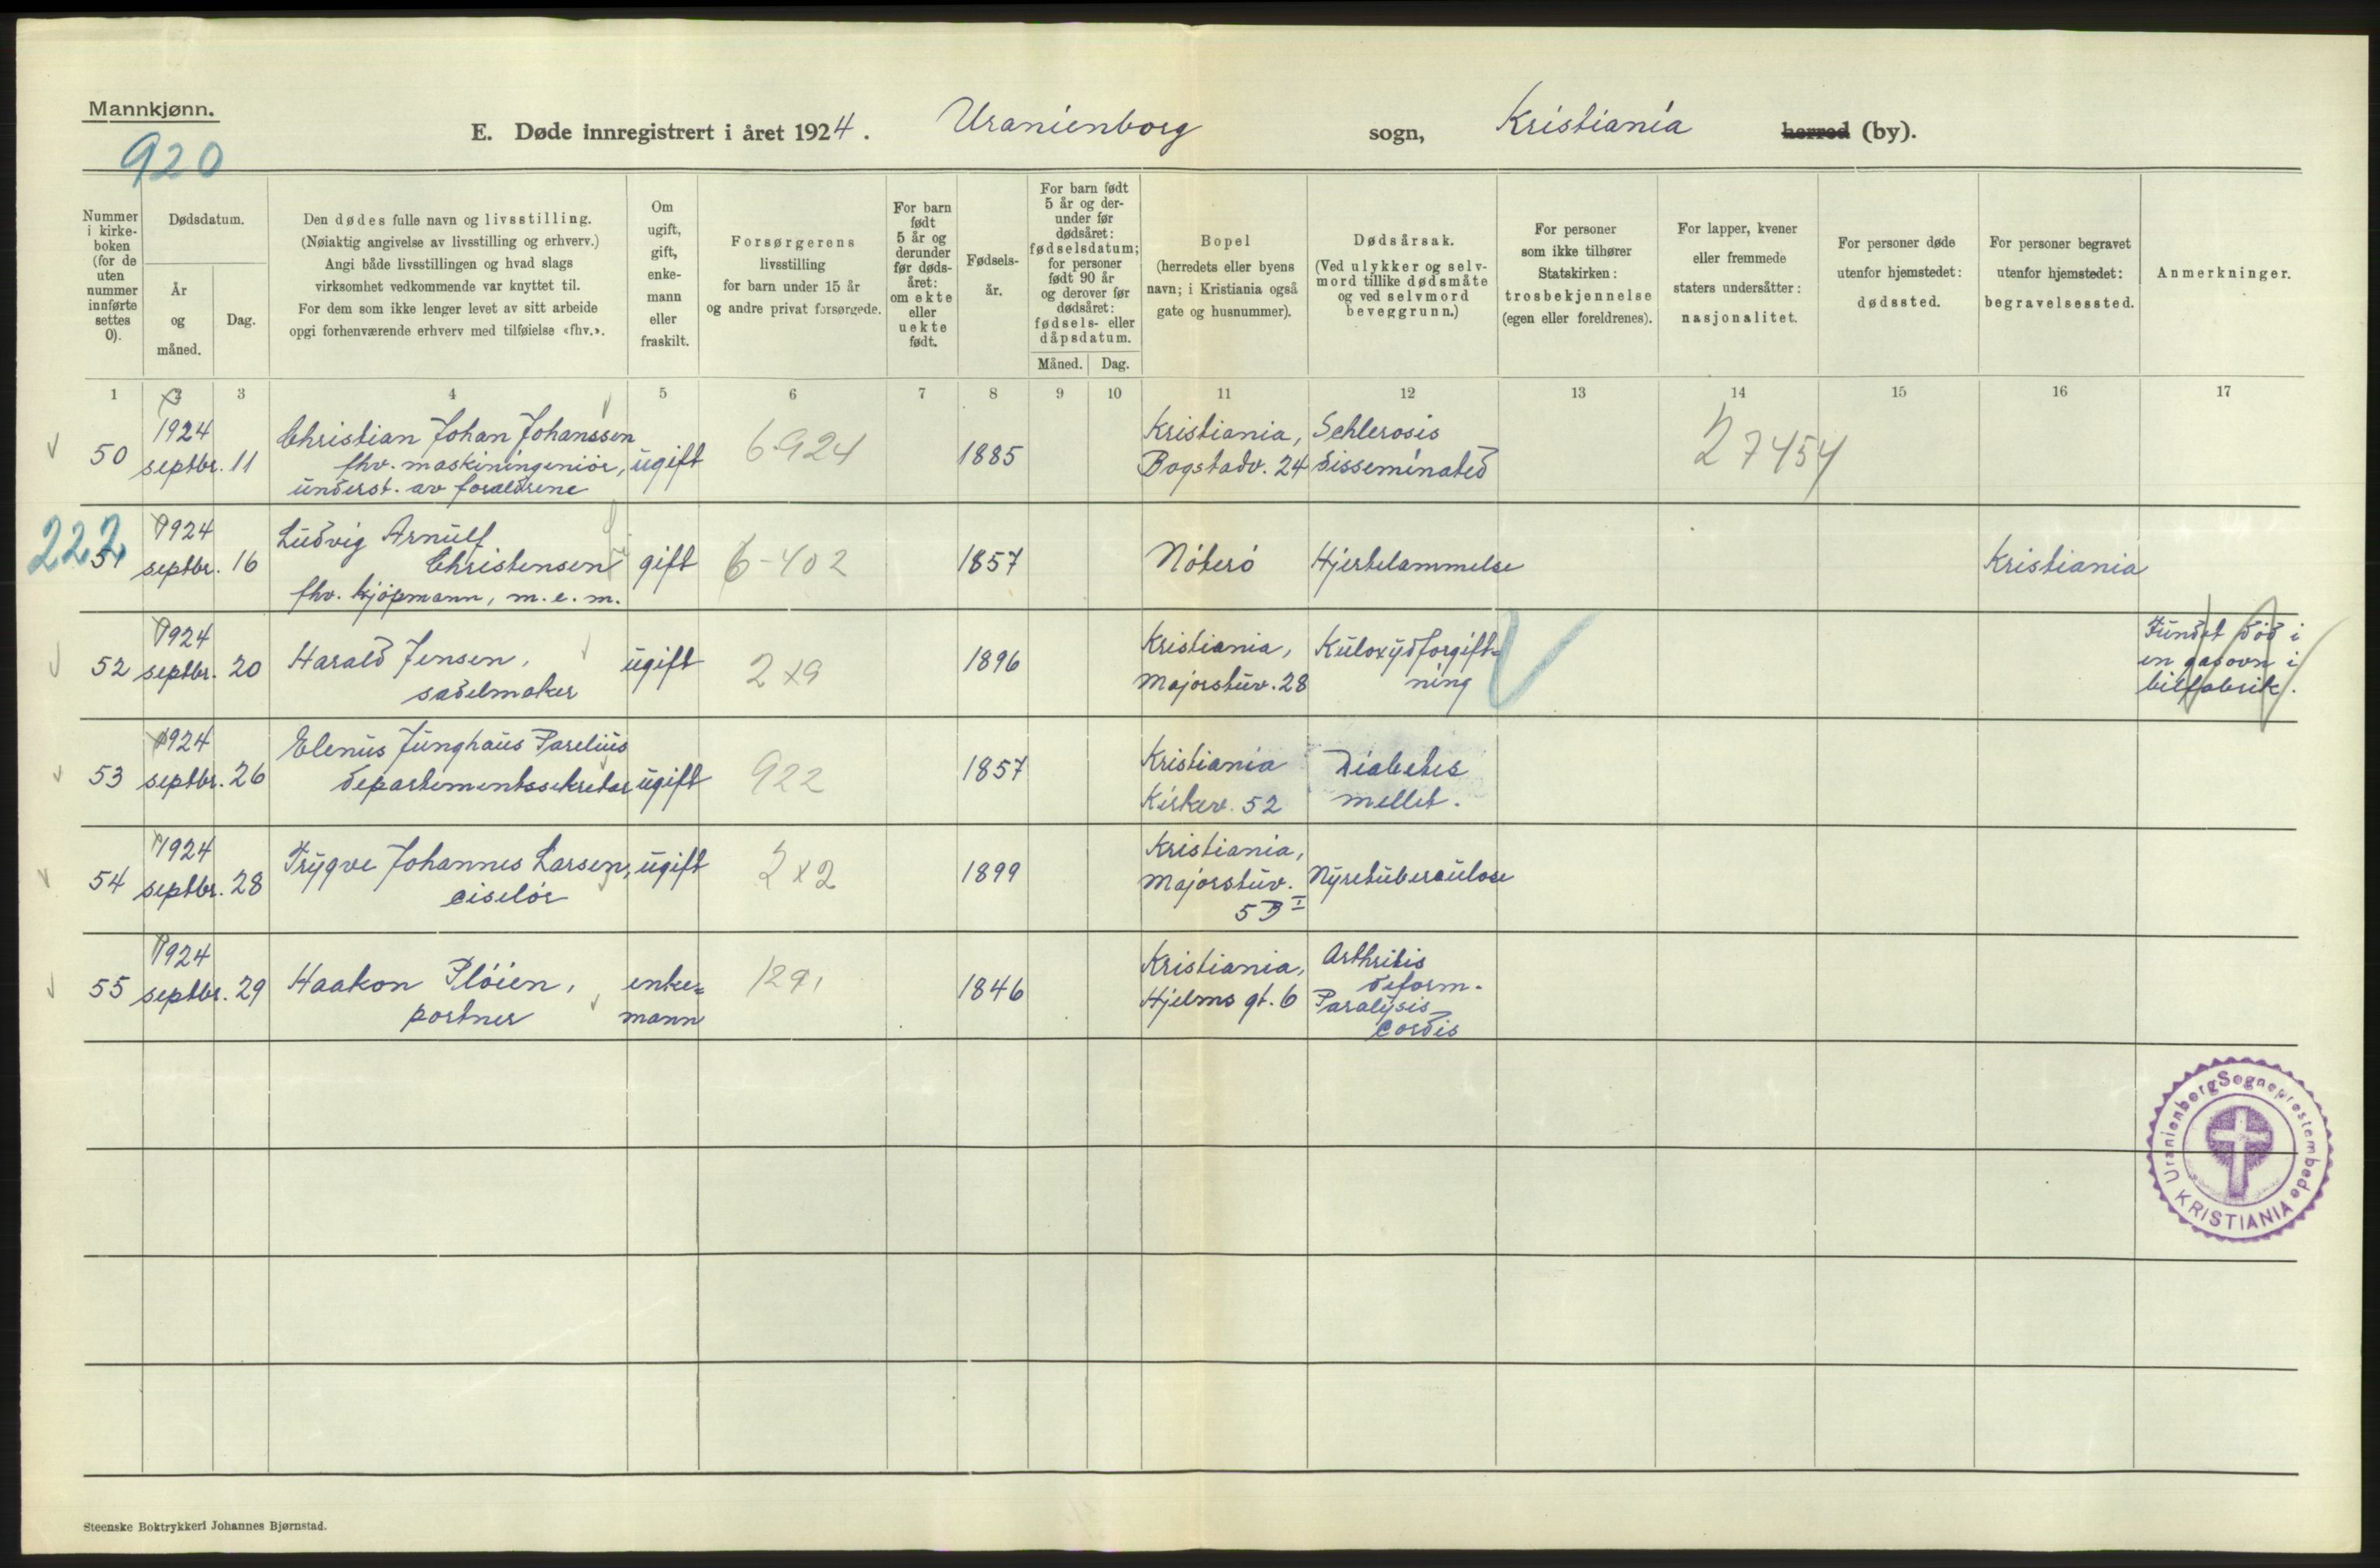 Mannkjønn.
920
E. Døde innregistrert i året 1924. Uranienborg sogn, Kristiania herred (by).
Nummer i kirke-boken (for de uten nummer innførte settes 0).
Dødsdatum.
År og måned.
Dag.
Den dødes fulle navn og livsstilling.
(Nøiaktig angivelse av livsstilling og erhverv.)
Angi både livsstillingen og hvad slags
virksomhet vedkommende var knyttet til.
For dem som ikke lenger levet av sitt arbeide
opgi forhenværende erhverv med tilføielse «fhv.».
Om ugift, gift, enke-mann eller fraskilt.
Forsørgerens
livsstilling
for barn under 15 år
og andre privat forsørgede.
For barn født 5 år og derunder før døds-året: om ekte eller uekte født.
Fødsels-år.
For barn født 5 år og der-under før dødsåret: fødselsdatum; for personer født 90 år og derover før dødsåret: fødsels- eller dåpsdatum.
Måned.
Dag.
Bopel
(herredets eller byens
navn; i Kristiania også
gate og husnummer).
Dødsårsak.
(Ved ulykker og selv-
mord tillike dødsmåte
og ved selvmord
beveggrunn.)
For personer
som ikke tilhører
Statskirken:
trosbekjennelse
(egen eller foreldrenes).
For lapper, kvener
eller fremmede
staters undersåtter:
nasjonalitet.
For personer døde
utenfor hjemstedet:
dødssted.
For personer begravet
utenfor hjemstedet:
begravelsessted.
Anmerkninger.
1 3 4 5 6 7 8 9 10 11 12 13 14 15 16 17
50 1924 septbr. 11
Christian Johan Johanssen
fhv. maskiningeniør,
underst. av forældrene
ugift 6-924 1885
Kristiania,
Bogstadv. 24
Schlerosis
disseminated
27454
222
51 1924 septbr. 16
Ludvig Arnulf
Christensen
fhv. kjøpmann, m.e.m.
gift 6-402 1857
Nøterø
Hjertelammelse
Kristiania
52 1924 septbr. 20
Harald Jensen,
sadelmaker
ugift 2x9 1896
Kristiania,
Majorstuv. 28
Kuloxydforgift=
ning
Fundet død i
en gasovn i
bilfabrik.
53 1924 septbr. 26
Elenus Junghaus Parelius
departementssekretær
ugift 922 1857
Kristiania
Kirkev. 52
Diabetes
mellet.
54 1924 septbr. 28
Trygve Johannes Larsen,
ciselør
ugift 2x2 1899
Kristiania,
Majorstuv.
5 B I
Nyretuberculose
55 1924 septbr. 29
Haakon Pløien,
portner
enke=
mann
1291 1846
Kristiania,
Hjelms gt. 6
Arthritis
deform.
Paralysis
Cordis
Uranienborg Sogneprestembede
KRISTIANIA
Steenske Boktrykkeri Johannes Bjørnstad.